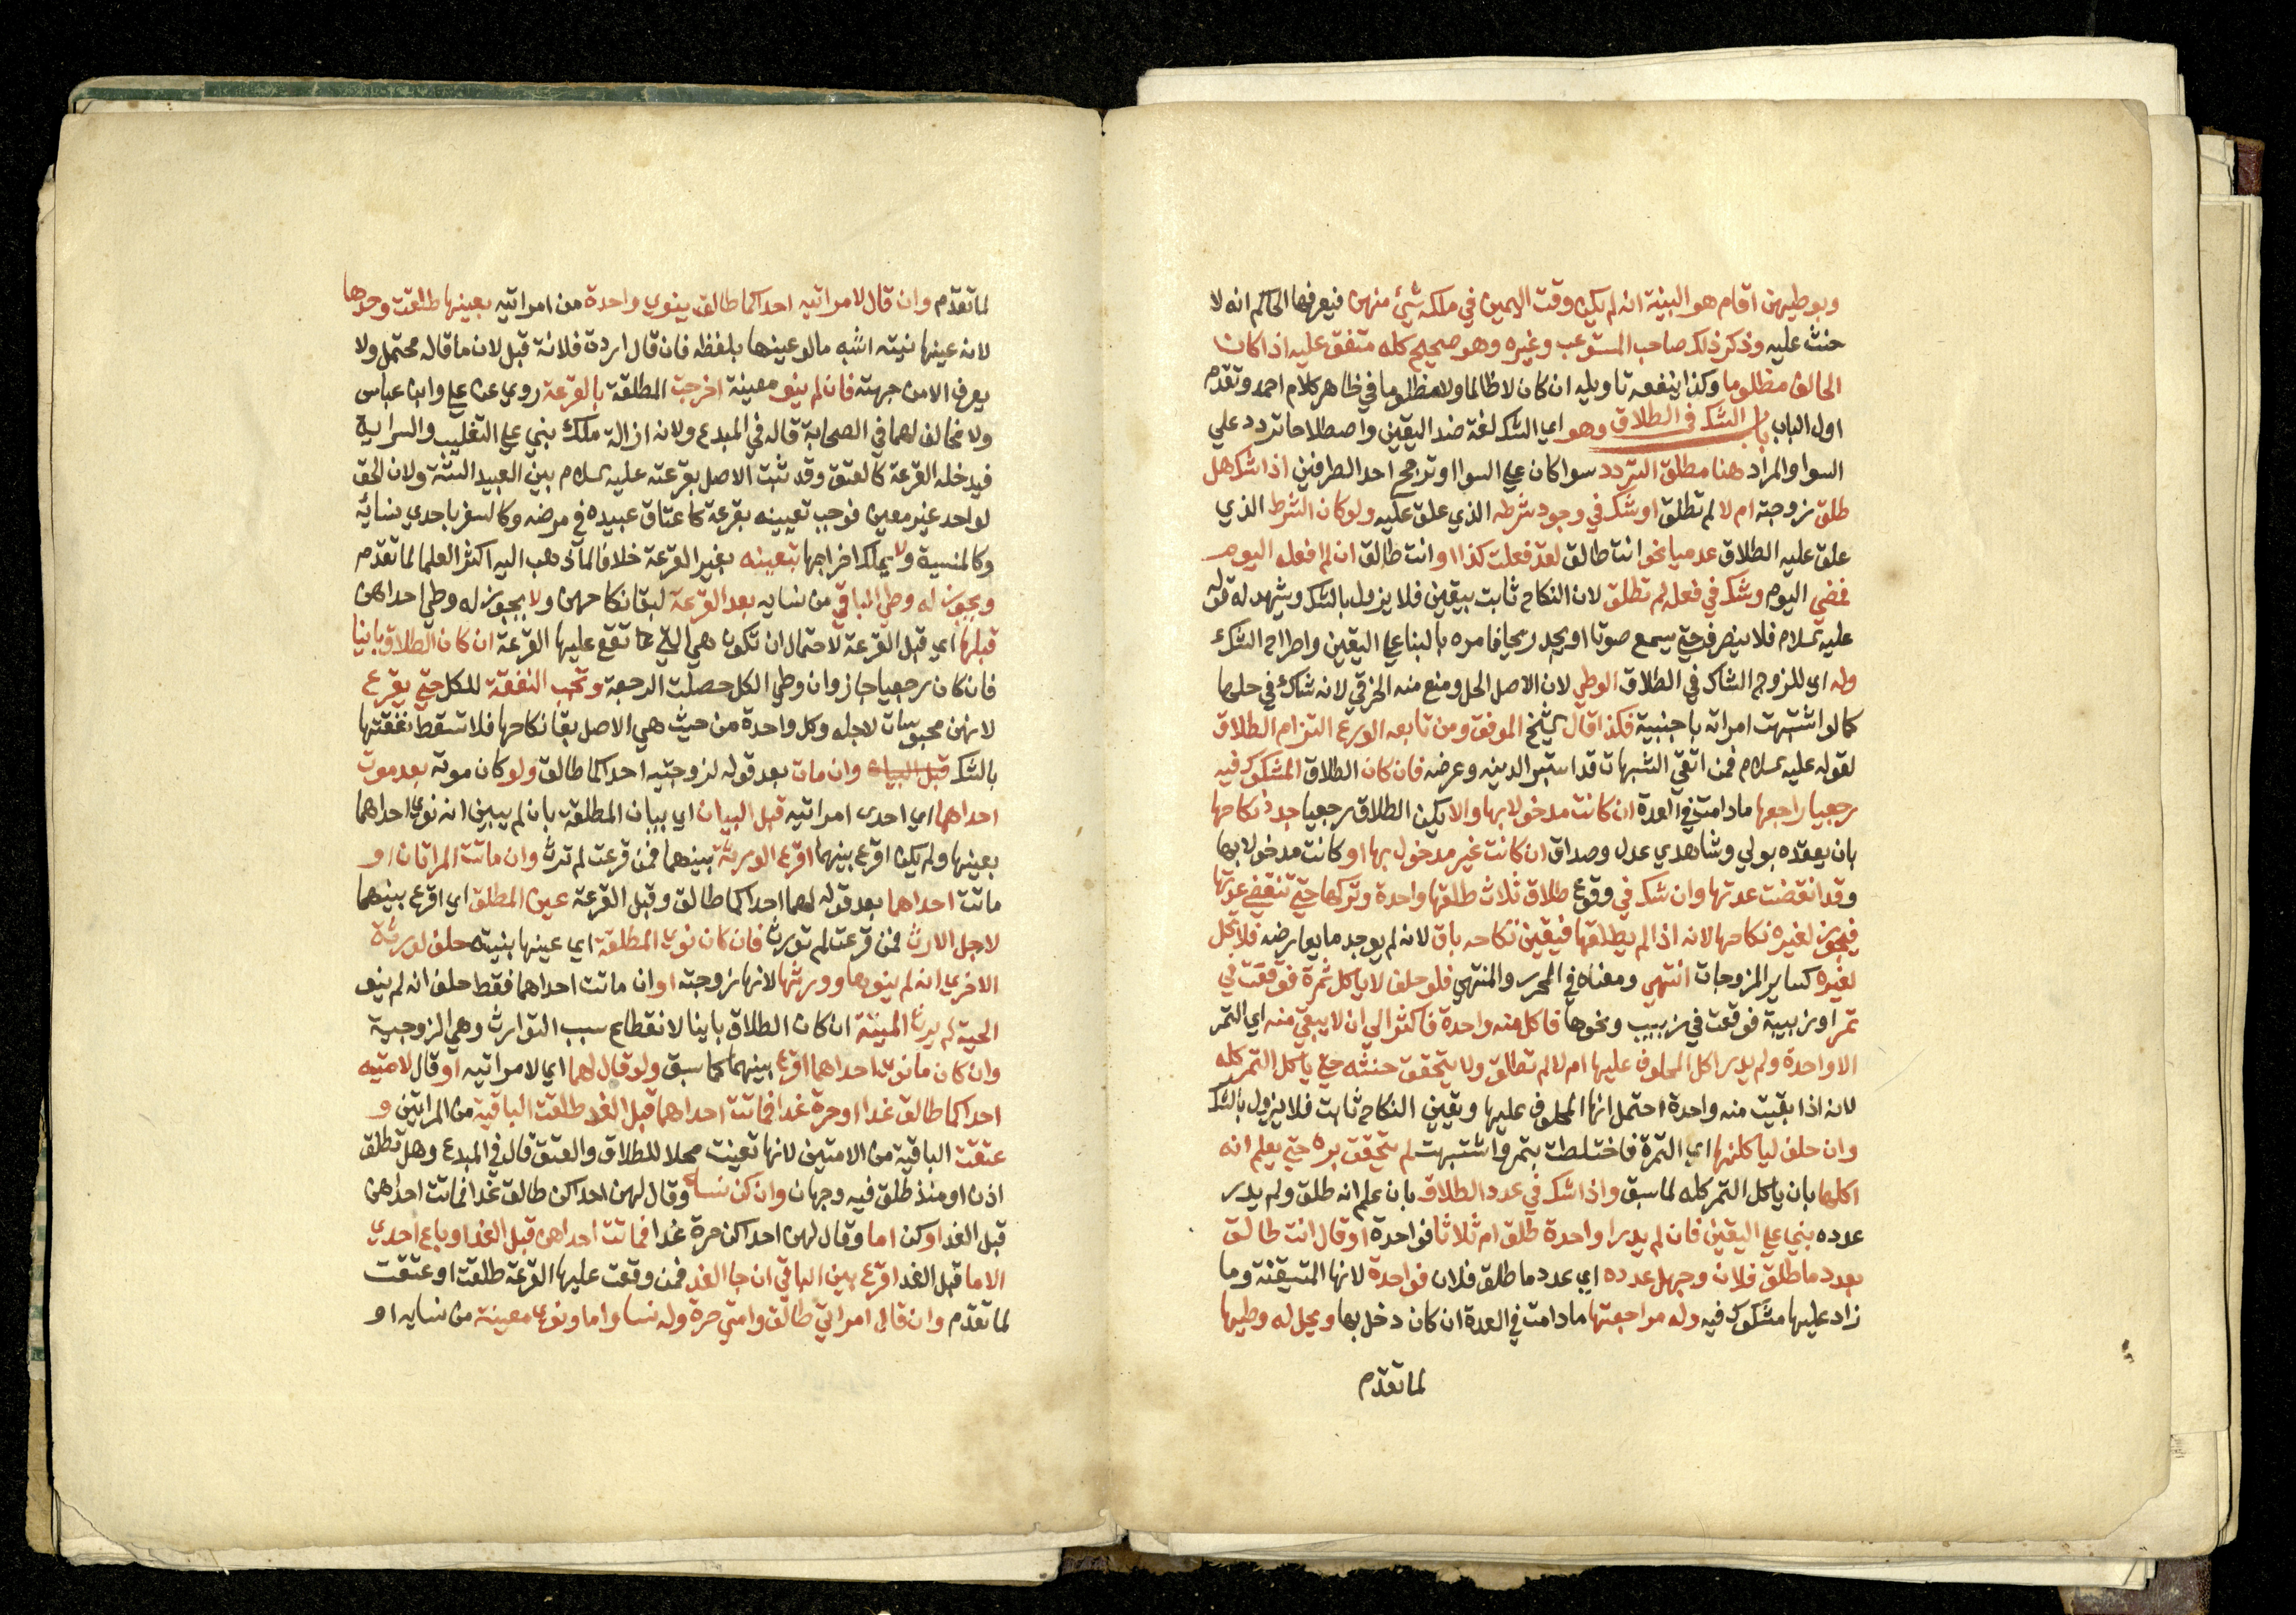 وبوطيهن اقام هو البينة انه لم يكن وقت اليمين في ملكه شيء منهن فيعرفها الحاكم انه لا
حنث عليه وذكر ذلك صاحب المستوعب وغيره وهو صحيح كله متفق عليه اذا كان
الحالف مظلوما وكذا ينفعه تاويله ان كان لا ظالما ولا مظلوما في ظاهر كلام احمد وتقدم
اول الباب باب الشك في الطلاق وهو اي الشك لغة ضد اليقين واصطلاحا تردد علي
السوا والمراد هنا مطلق التردد سوا كان علي السوا او ترجح احد الطرفين اذا شك هل
طلق زوجته ام لا لم تطلق او شك في وجود شرطه الذي علق عليه ولو كان الشرط الذي
علق عليه الطلاق عدميا نحو انت طالق لقد فعلت كذا او انت طالق ان لم افعله اليوم
فمضي اليوم وشك في فعله لم تطلق لان النكاح ثابت بيقين فلا يزول بالشك ويشهد له قوله
عليه السلام فلا ينصرف حتي يسمع صوتا او يجد ريحا فامره بالبنا علي اليقين واطراح الشك
وله اي للزوج الشاك في الطلاق الوطي لان الاصل الحل ومنع منه الخرقي لانه شاك في حلها
كما لو اشتبهت امراته باجنبية فكذا قال الشيخ الموفق ومن تابعه الورع التزام الطلاق
لقوله عليه السلام فمن اتقي الشبهات فقد استبرا لدينه وعرضه فان كان الطلاق المشكوك فيه
رجعيا راجعها ما دامت في العدة ان كانت مدخولا بها والا يكن الطلاق رجعيا جدد نكاحها
بان يعقده بولي وشاهدي عدل وصداق ان كانت غير مدخول بها او كانت مدخولا بها
وقد انقضت عدتها وان شك في وقوع طلاق ثلاث طلقها واحدة وتركها حتي تنقضي عدتها
فيجوز لغيره نكاحها لانه اذا لم يطلقها فيقين نكاحه باق لانه لم يوجد ما يعارضه فلا تحل
لغيره كساير المزوجات انتهي ومعناه في المحرر والمنتهي فلو حلف لا ياكل ثمرة فوقعت في
تمر او زبيبة فوقعت في زبيب ونحوها فاكل منه واحدة فاكثر الي ان لا يبقي منه اي التمر
الا واحدة ولم يدر اكل المحلوف عليها ام لا لم تطلق ولا يتحقق حنثه حتي ياكل التمر كله
لانه اذا بقيت منه واحدة احتمل انها المحلوف عليها ويقين النكاح ثابت فلا يزول بالشك
وان حلف لياكلنها اي التمرة فاختلطت بتمر واشتبهت لم يتحقق بره حتي يعلم انه
اكلها بان ياكل التمر كله لما سبق واذا شك في عدد الطلاق بان علم انه طلق ولم يدر
عدده بني علي اليقين فان لم يدر ا واحدة طلق ام ثلاثا فواحدة او قال انت طالق
بعدد ما طلق فلان وجهل عدده اي عدد ما طلق فلان فواحدة لانها المتيقنة وما
زاد عليها مشكوك فيه وله مراجعتها ما دامت في العدة ان كان دخل بها ويحل له وطيها
لما تقدم
لما تقدم وان قال لامراتيه احداكما طالق ينوي واحدة من امراتيه بعينها طلقت وحدها
لانه عينها نيته اشبه ما لو عينها بلفظه فان قال اردت فلانة قبل لان ما قاله محتمل ولا
يعرف الا من جهته فان لم ينو معينة اخرجت المطلقة بالقرعة روي عن علي وابن عباس
ولا مخالف لهما في الصحابة قاله في المبدع ولانه ازالة ملك بني علي التغليب والسراية
فيدخله القرعة كالعتق وقد ثبت الاصل بقرعته عليه السلام بين العبيد الستة ولان الحق
لواحد غير معين فوجب تعيينه بقرعة كاعتاق عبيده في مرضه وكالسفر باحدي نسائه
وكالمنسية ولا يملك اخراجها بتعيينه بغير القرعة خلافا لما ذهب اليه اكثر العلما لما تقدم
ويجوز له وطي الباقي من نسايه بعد القرعة لبقا نكاحهن ولا يجوز له وطي احداهن
قبلها اي قبل القرعة لاحتمال ان تكون هي التي تقع عليها القرعة ان كان الطلاق باينا
فان كان رجعيا جاز وان وطي الكل حصلت الرجعة وتجب النفقة للكل حتي يقرع
لانهن محبوسات لاجله وكل واحدة من حيث هي الاصل بقا نكاحها فلا تسقط نفقتها
بالشك قبل البيان وان مات بعد قوله لزوجتيه احداكما طالق ولو كان موته بعد موت
احداهما اي احدي امراتيه قبل البيان اي بيان المطلقة بان لم يبين انه نوي احداهما
بعينها ولم يكن اقرع بينهما اقرع الورثة بينهما فمن قرعت لم ترث وان ماتت المراتان او
ماتت احداهما بعد قوله لهما احداكما طالق وقبل القرعة عين المطلق اي اقرع بينهما
لاجل الارث فمن قرعت لم تورث فان كان نوي المطلقة اي عينها بنيته حلف لورثة
الاخري انه لم ينوها وورثها لانها زوجته او ان ماتت احداهما فقط حلف انه لم ينو
الحية لم يرث الميتة ان كان الطلاق باينا لانقطاع سبب التوارث وهي الزوجية
وان كان ما نوي احداهما اقرع بينهما كما سبق ولو قال لهما اي لامراتيه او قال لامتيه
احداكما طالق غدا او حرة غدا فماتت احداهما قبل الغد طلقت الباقية من المراتين و
عتقت الباقية من الامتين لانها تعينت محلا للطلاق والعتق قاله في المبدع وهل تطلق
اذن او منذ طلق فيه وجهان وان كن نساء وقال لهن احداكن طالق غدا فماتت احداهن
قبل الغد او كن اما وقال لهن احداكن حرة غدا فماتت احداهن قبل الغد او باع احدي
الاما قبل الغد اقرع بين الباقي ان جا الغد فمن وقعت عليها القرعة طلقت او عتقت
لما تقدم وان قال امراتي طالق وامتي حرة وله نسا واما ونوي معينة من نسايه او